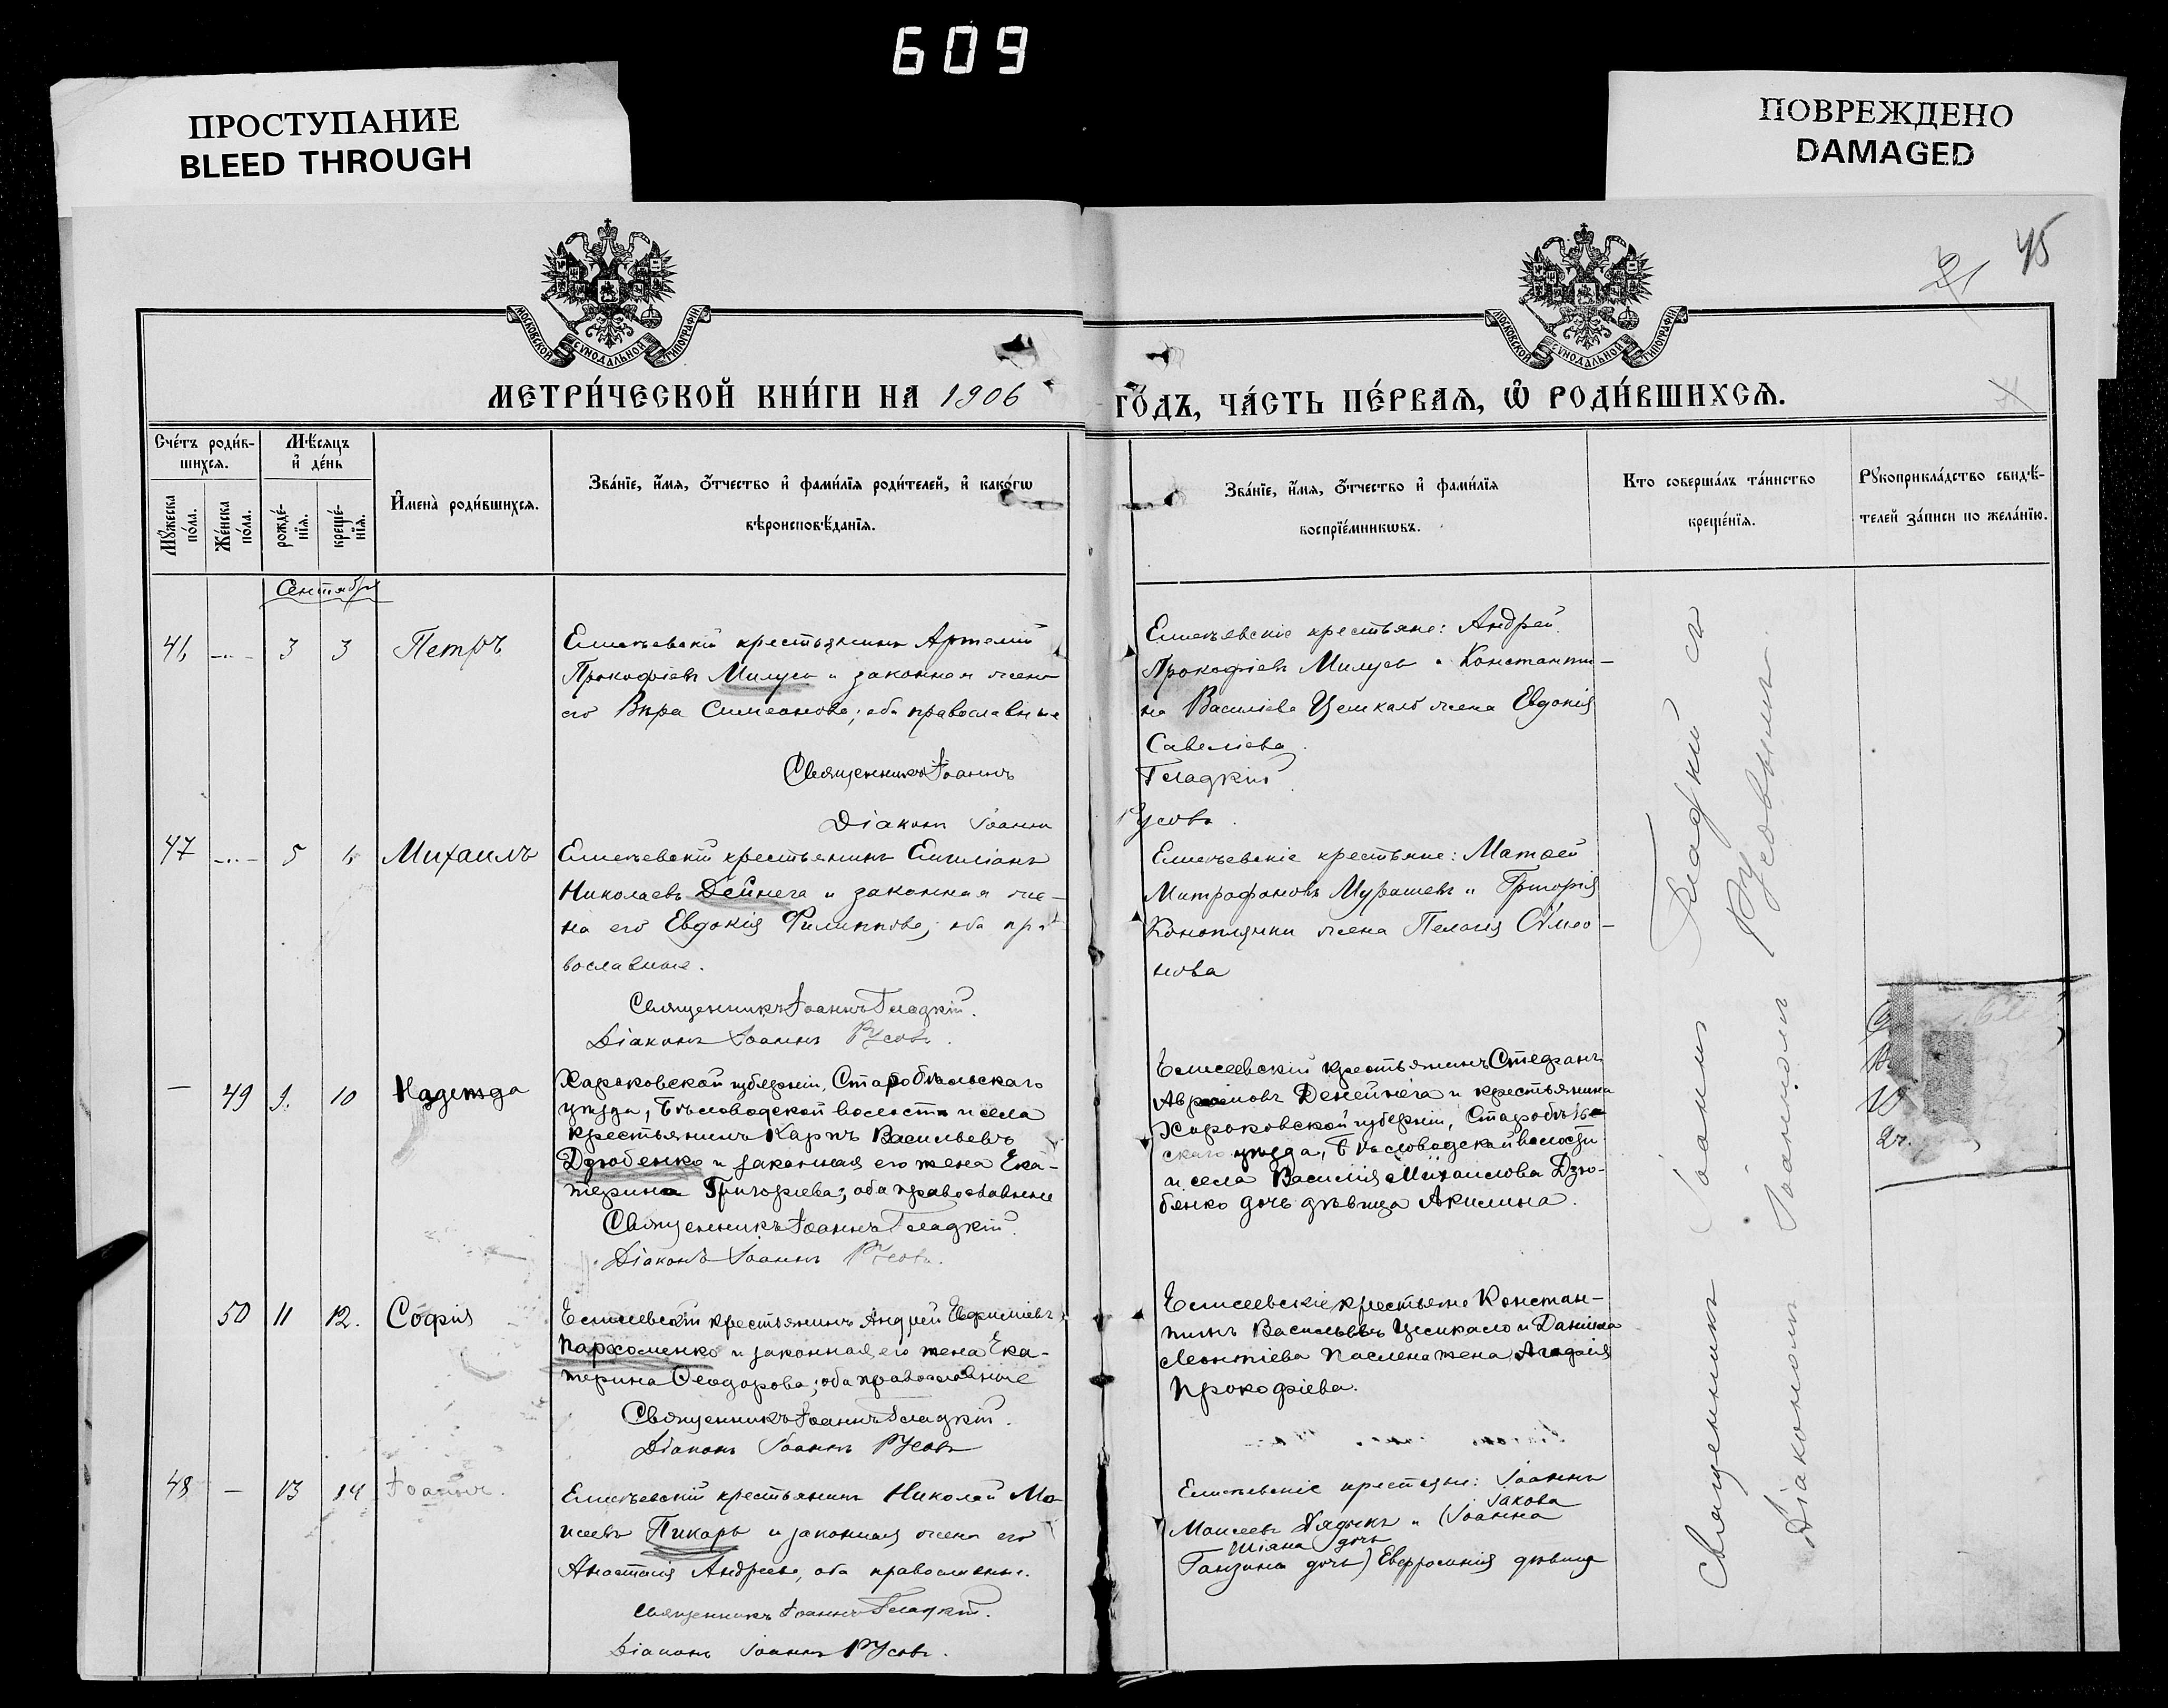 609
ПРОСТУПАНИЕ
BLEED THROUGH
ПОВРЕЖДЕНО
DAMAGED
45
МОСКОВСКОЙ СѴНОДАЛЬНОЙ ТИПОГРАФІИ
МОСКОВСКОЙ СѴНОДАЛЬНОЙ ТИПОГРАФІИ
МЕТРИ́ЧЕСКОЙ КНИ́ГИ НА 1906 ГО́ДЪ, ЧА́СТЬ ПЕ́РВАѦ, Ѡ҆ РОДИ́ВШИХСѦ.
Сче́тъ роди́в-
шихсѧ.
Мѣ́сѧцъ
и҆ де́нь
Мꙋ́жеска
по́ла.
Же́нска
по́ла.
рожде́-
нїѧ.
креще́-
нїѧ.
И҆мена̀ роди́вшихсѧ.
Зва́нїе, и҆́мѧ, ѻ҆́тчество и҆ фами́лїѧ роди́телей, и҆ како́гѡ
вѣроисповѣ́данїѧ.
Зва́нїе, и҆́мѧ, ѻ҆́тчество и҆ фами́лїѧ
воспрїе́мникѡвъ.
Кто соверша́лъ та́инство
креще́нїѧ.
Рꙋкоприкла́дство свидѣ́-
телей за́писи по жела́нїю.
Сентября
46 3 3 Петръ
Елисѣевскій крестьянинъ Артемій
Прокофіевъ Милусь и законная жена
его Вѣра Симеонова; оба православные
Священникъ Іоаннъ Гладкій
Діаконъ Іоаннъ Русовъ.
Елисѣевскіе крестьяне: Андрей
Прокофіевъ Милусь и Константи-
на Василіева Цемкало жена Евдокія
Савеліева.
47 5 6 Михаилъ
Елисѣевскій крестьянинъ Емиліанъ
Николаевъ Дейнега и законная же-
на его Евдокія Филиппова; оба пра-
вославные.
Священникъ Іоаннъ Гладкій.
Діаконъ Іоаннъ Русовъ.
Елисѣевскіе крестьяне: Матѳей
Митрофановъ Мурашевъ и Григорія
Коноплянки жена Пелагія Сѵмео-
нова
— 49 9. 10 Надежда
Харьковской губерніи, Старобѣльскаго
уѣзда, Бѣловодской волости и села
крестьянинъ Карпъ Васильевъ
Дзюбенко и законная его жена Ека-
терина Григорьева; оба православные
Священникъ Іоаннъ Гладкій.
Діаконъ Іоаннъ Русовъ.
Елисеевскій крестьянинъ Стефанъ
Дейнега и крестьянина
Харьковской губерніи, Старобѣль-
скаго уѣзда, Бѣловодской волости
и села Василія Михаилова Дзю-
бенко дочь дѣвица Акилина.
50 11 12. Софія
Елисеевскій крестьянинъ Андрей Евфиміевъ
Пархоменко и законная его жена Ека-
терина Ѳеодорова; оба православные
Священникъ Іоаннъ Гладкій.
Діаконъ Іоаннъ Русовъ
Елисеевскіе крестьяне Констан-
тинъ Васильевъ Цемкало и Даніила
Леонтіева жена Агафія
Прокофіева.
48 — 13 14 Іоаннъ.
Елисѣевскій крестьянинъ Николай Мо-
исеевъ Пикарь и законная жена его
Анастасія Андреева, оба православные.
Священникъ Іоаннъ Гладкій.
Діаконъ Іоаннъ Русовъ.
Елисѣевскіе крестьяне: Іоаннъ
Моисеевъ и (Іоанна
Іакова
дочь
дочь) Евфросинія дѣвица
Священникъ Іоаннъ Гладкій съ
Діакономъ Іоанномъ Русовымъ.